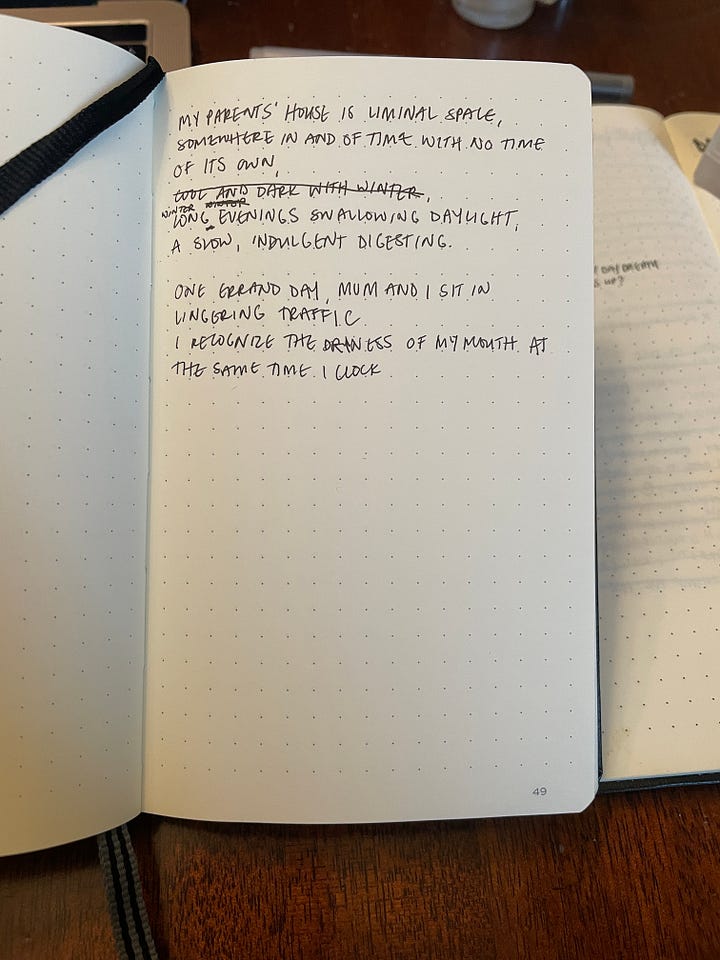 MY PARENTS' HOUSE IS LIMINAL SPACE,
SOMEWHERE IN AND OF TIME WITH NO TIME
OF ITS OWN,
COOL AND DARK WITH WINTER,
WINTER WINTER
LONG EVENINGS SWALLOWING DAYLIGHT,
A SLOW, INDULGENT DIGESTING.
ONE ERRAND DAY, MUM AND I SIT IN
LINGERING TRAFFIC
I RECOGNIZE THE DRYNESS OF MY MOUTH AT
THE SAME TIME I CLOCK
49
DAYDREAM
UP?